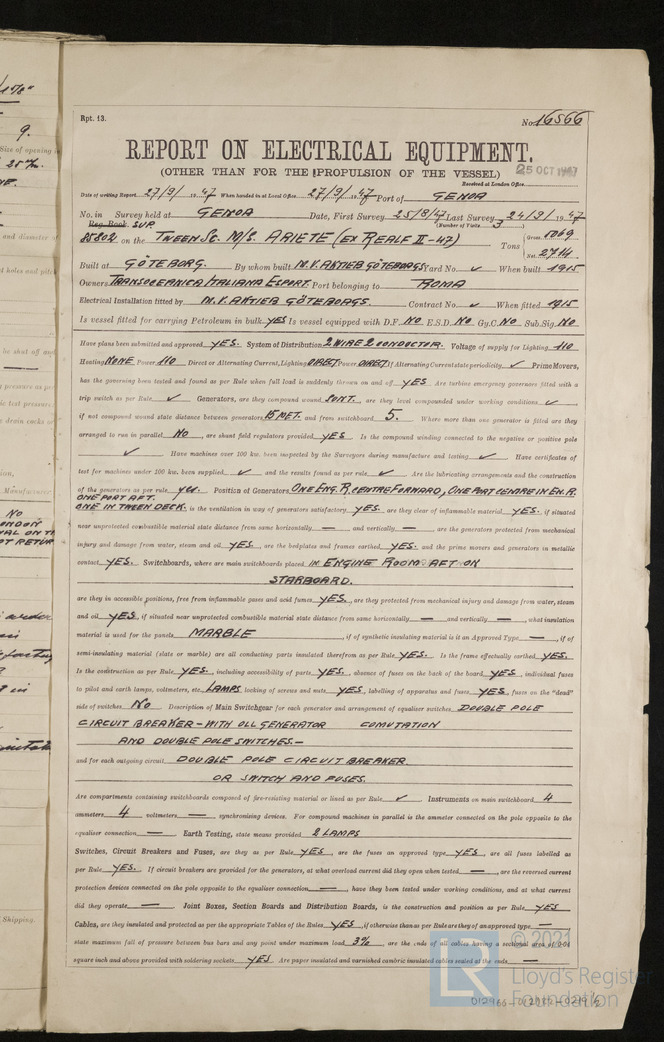 Rpt. 13.
No. 16566
REPORT ON ELECTRICAL EQUIPMENT.
(OTHER THAN FOR THE PROPULSION OF THE VESSEL)
25 OCT 1947
Received at London Office
Date of writing Report 27/9/ 19 47 When handed in at Local Office 27/9/ 19 47 Port of GENOA
No. in Survey held at GENOA Date, First Survey 25/8/47 Last Survey 24/9/ 1947
Reg. Book. SUP. (Number of Visits 3 )
85802 on the TWEEN SC. M/S. ARIETE (EX REALF II - 47) Tons { Gross 5069
Net 2714
Built at GÖTEBORG. By whom built N.V. AKTIEB GÖTEBORGS Yard No. ✓ When built 1915
Owners TRANSOCEANICA ITALIANA ESPORT. Port belonging to ROMA
Electrical Installation fitted by N.V. AKTIEB GÖTEBORGS. Contract No. ✓ When fitted 1915
Is vessel fitted for carrying Petroleum in bulk YES Is vessel equipped with D.F. NO E.S.D. NO Gy.C. NO Sub.Sig. NO
Have plans been submitted and approved YES. System of Distribution 2 WIRE 2 CONDUCTOR. Voltage of supply for Lighting 110
Heating NONE Power 110 Direct or Alternating Current, Lighting DIRECT Power DIRECT If Alternating Current state periodicity ✓ Prime Movers,
has the governing been tested and found as per Rule when full load is suddenly thrown on and off YES Are turbine emergency governors fitted with a
trip switch as per Rule ✓ Generators, are they compound wound are they level compounded under working conditions ✓
if not compound wound state distance between generators 15 MET. and from switchboard 5. Where more than one generator is fitted are they
arranged to run in parallel NO, are shunt field regulators provided YES Is the compound winding connected to the negative or positive pole
✓ Have machines over 100 kw. been inspected by the Surveyors during manufacture and testing ✓ Have certificates of
test for machines under 100 kw. been supplied ✓ and the results found as per rule ✓ Are the lubricating arrangements and the construction
of the generators as per rule yes. Position of Generators ONE ENG. R. CENTRE FORWARD, ONE PORT CENTRE IN EN. R.
ONE PORT AFT.
ONE IN TWEEN DECK. is the ventilation in way of generators satisfactory YES. are they clear of inflammable material YES. if situated
near unprotected combustible material state distance from same horizontally — and vertically —, are the generators protected from mechanical
injury and damage from water, steam and oil YES., are the bedplates and frames earthed YES. and the prime movers and generators in metallic
contact YES. Switchboards, where are main switchboards placed IN ENGINE ROOM AFT ON
STARBOARD.
are they in accessible positions, free from inflammable gases and acid fumes YES., are they protected from mechanical injury and damage from water, steam
and oil YES, if situated near unprotected combustible material state distance from same horizontally — and vertically —, what insulation
material is used for the panels MARBLE, if of synthetic insulating material is it an Approved Type —, if of
semi-insulating material (slate or marble) are all conducting parts insulated therefrom as per Rule YES. Is the frame effectually earthed YES.
Is the construction as per Rule YES., including accessibility of parts YES, absence of fuses on the back of the board YES, individual fuses
to pilot and earth lamps, voltmeters, etc. LAMPS locking of screws and nuts YES, labelling of apparatus and fuses YES, fuses on the "dead"
side of switches NO Description of Main Switchgear for each generator and arrangement of equaliser switches DOUBLE POLE
CIRCUIT BREAKER - WITH OLL GENERATOR COMUTATION
AND DOUBLE POLE SWITCHES.-
and for each outgoing circuit DOUBLE POLE CIRCUIT BREAKER
OR SWITCH AND FUSES.
Are compartments containing switchboards composed of fire-resisting material or lined as per Rule ✓. Instruments on main switchboard 4
ammeters 4 voltmeters — synchronising devices. For compound machines in parallel is the ammeter connected on the pole opposite to the
equaliser connection — Earth Testing, state means provided 2 LAMPS
Switches, Circuit Breakers and Fuses, are they as per Rule YES, are the fuses an approved type YES, are all fuses labelled as
per Rule YES. If circuit breakers are provided for the generators, at what overload current did they open when tested —, are the reversed current
protection devices connected on the pole opposite to the equaliser connection —, have they been tested under working conditions, and at what current
did they operate — Joint Boxes, Section Boards and Distribution Boards, is the construction and position as per Rule YES
Cables, are they insulated and protected as per the appropriate Tables of the Rules YES, if otherwise than as per Rule are they of an approved type —
state maximum fall of pressure between bus bars and any point under maximum load 3%, are the ends of all cables having a sectional area of 0.04
square inch and above provided with soldering sockets YES Are paper insulated and varnished cambric insulated cables sealed at the ends —
© 2021
Lloyd's Register
Foundation